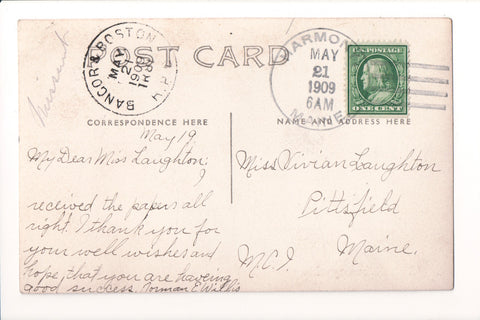 Missent
POST CARD
BANGOR & BOSTON
MAY
21
1909
R.P.O.
HARMONY
MAY
21
1909
6AM
MAINE
U.S. POSTAGE
ONE CENT
CORRESPONDENCE HERE
NAME AND ADDRESS HERE
May 19
My Dear Miss Laughton:
I
received the papers all
right. I thank you for
your well wishes and
hope, that you are haveing
good success. Norman E. Willis
Miss Vivian Laughton
Pittsfield
Maine.
M.C.I.